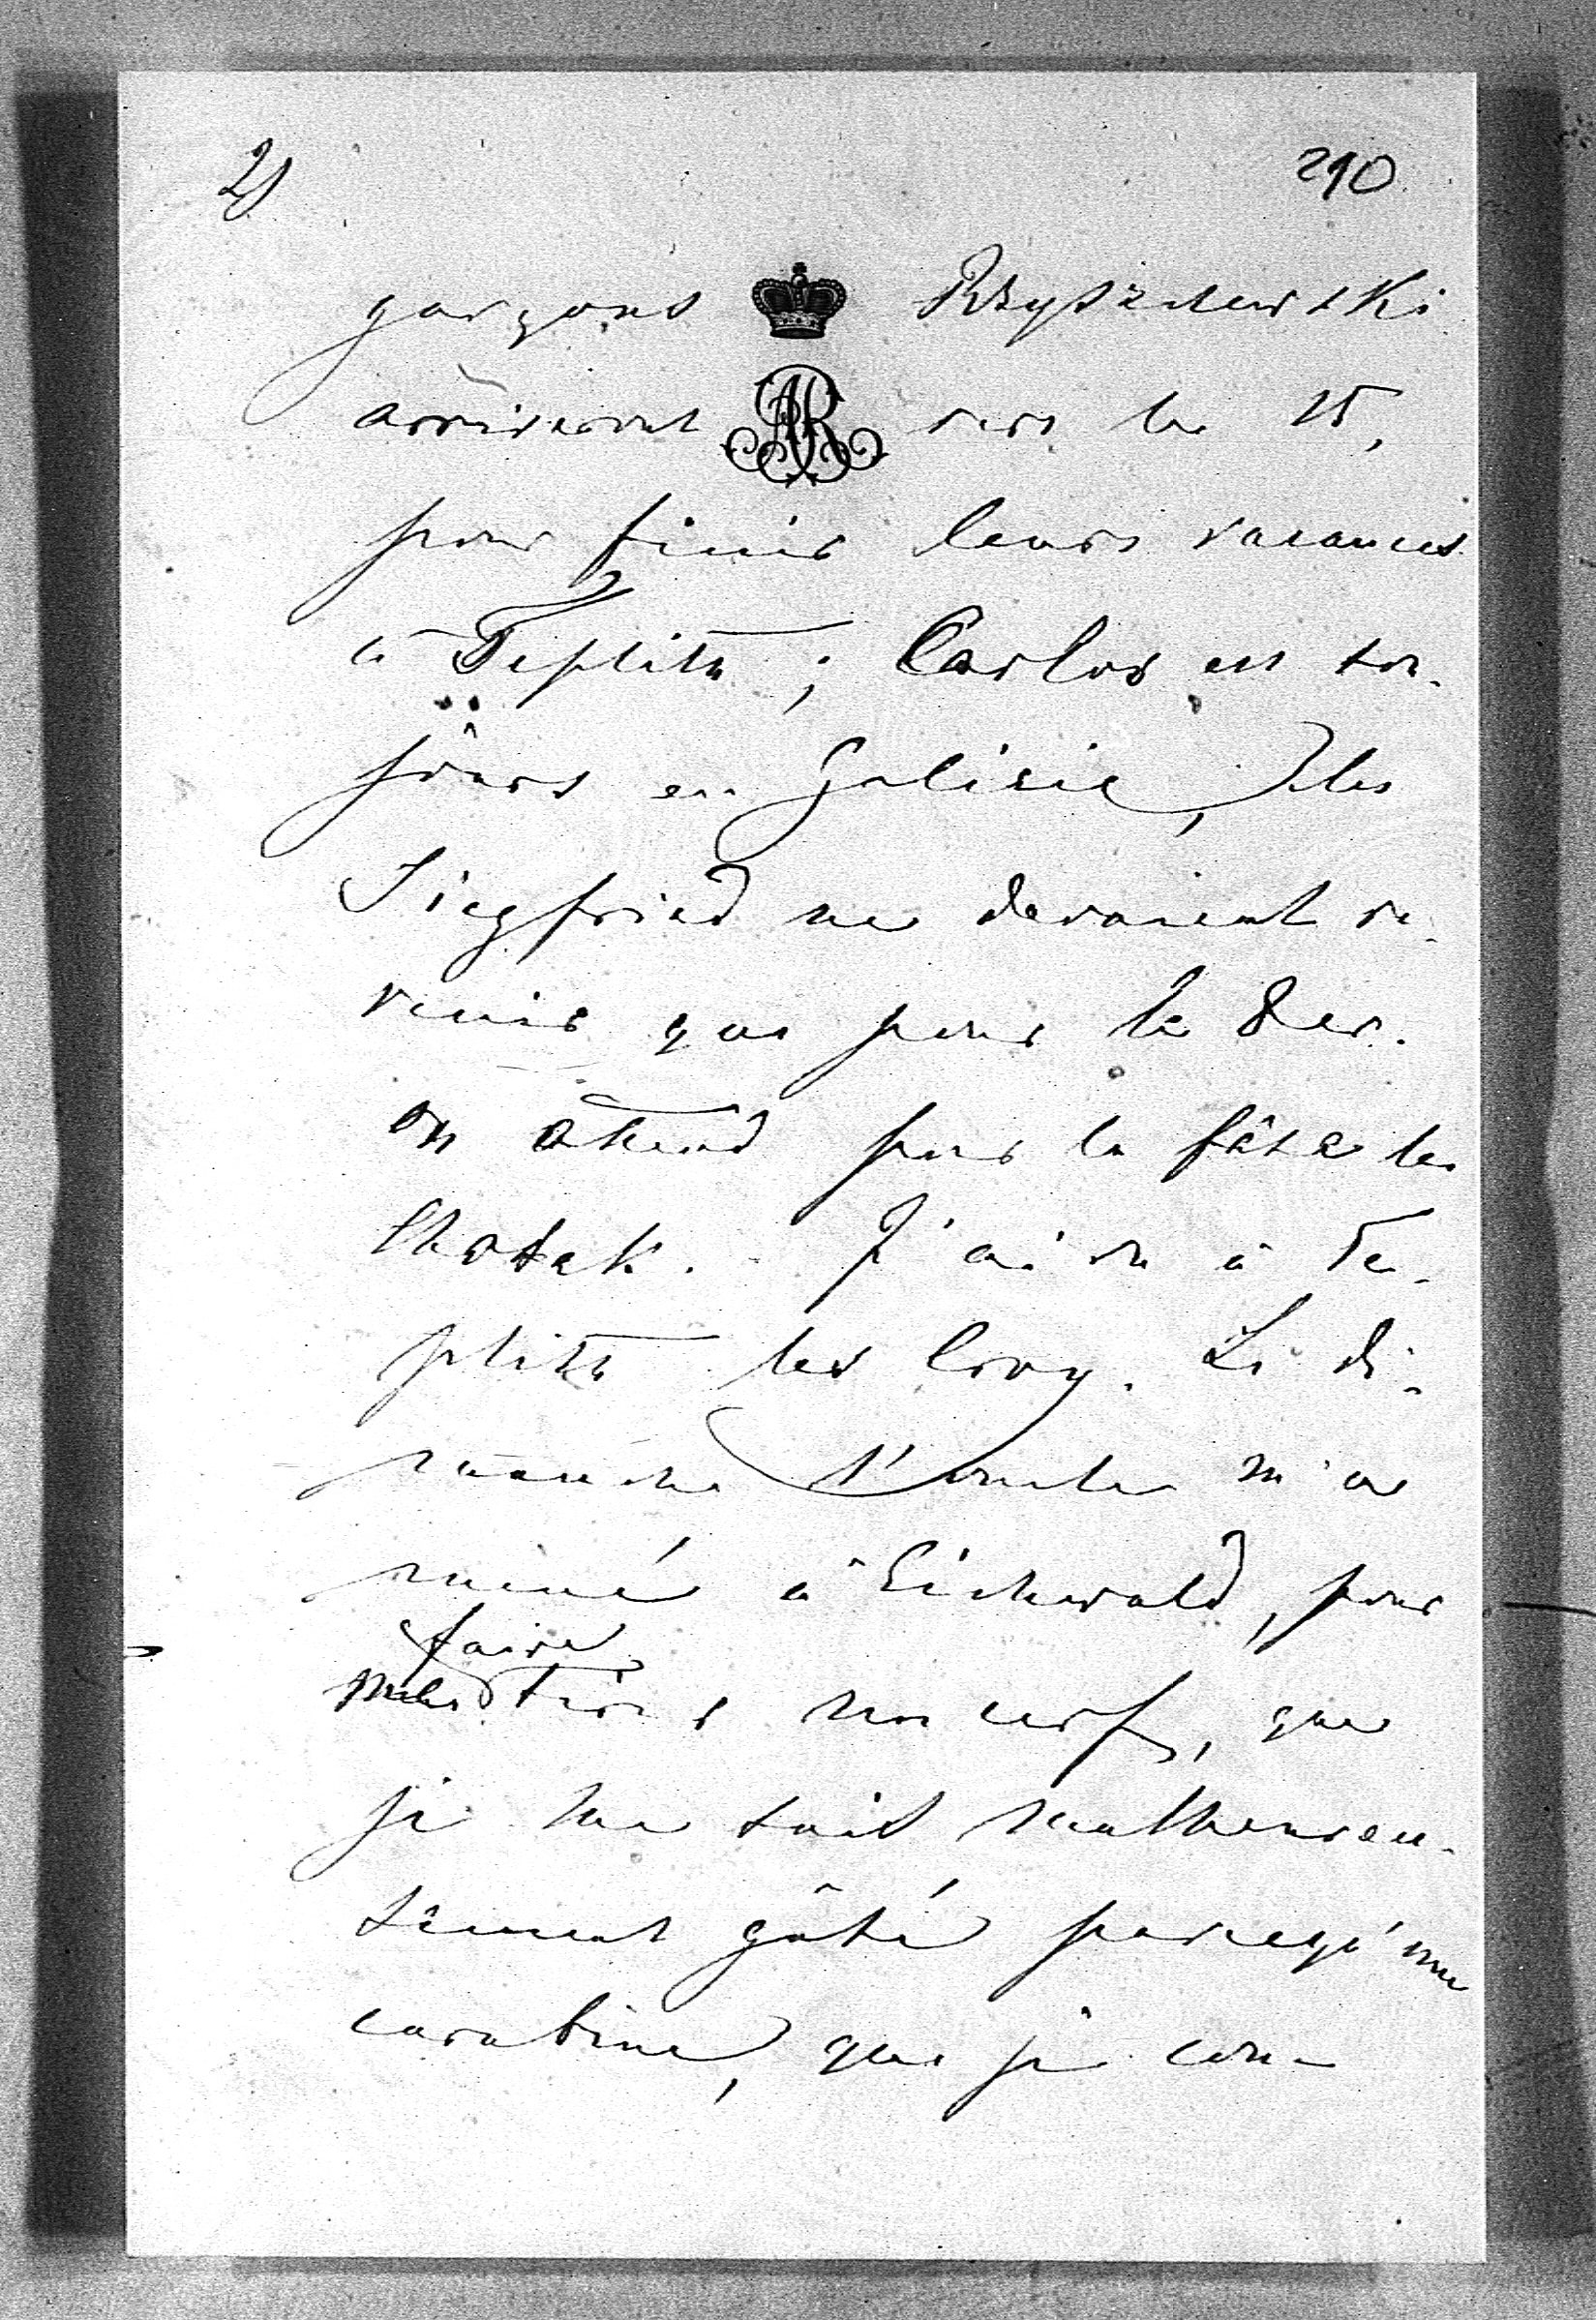 2)
210
garçons Rzyszczewski
arriveront vers le 15,
pour finir leurs vacances
à Teplitz; Carlos est tou-
jours en Galizie, les
Siegfried ne devaient re-
venir que pour le 8 er.
On attend pour la fête les
Chotek. J'ai vu à Te-
plitz les Croy. Le di-
manche l'oncle m'a
mené à Eichwald, pour
faire
tirer un cerf, que
je me suis malheureu-
sement gâté parcequ'une
carabine, que je con-